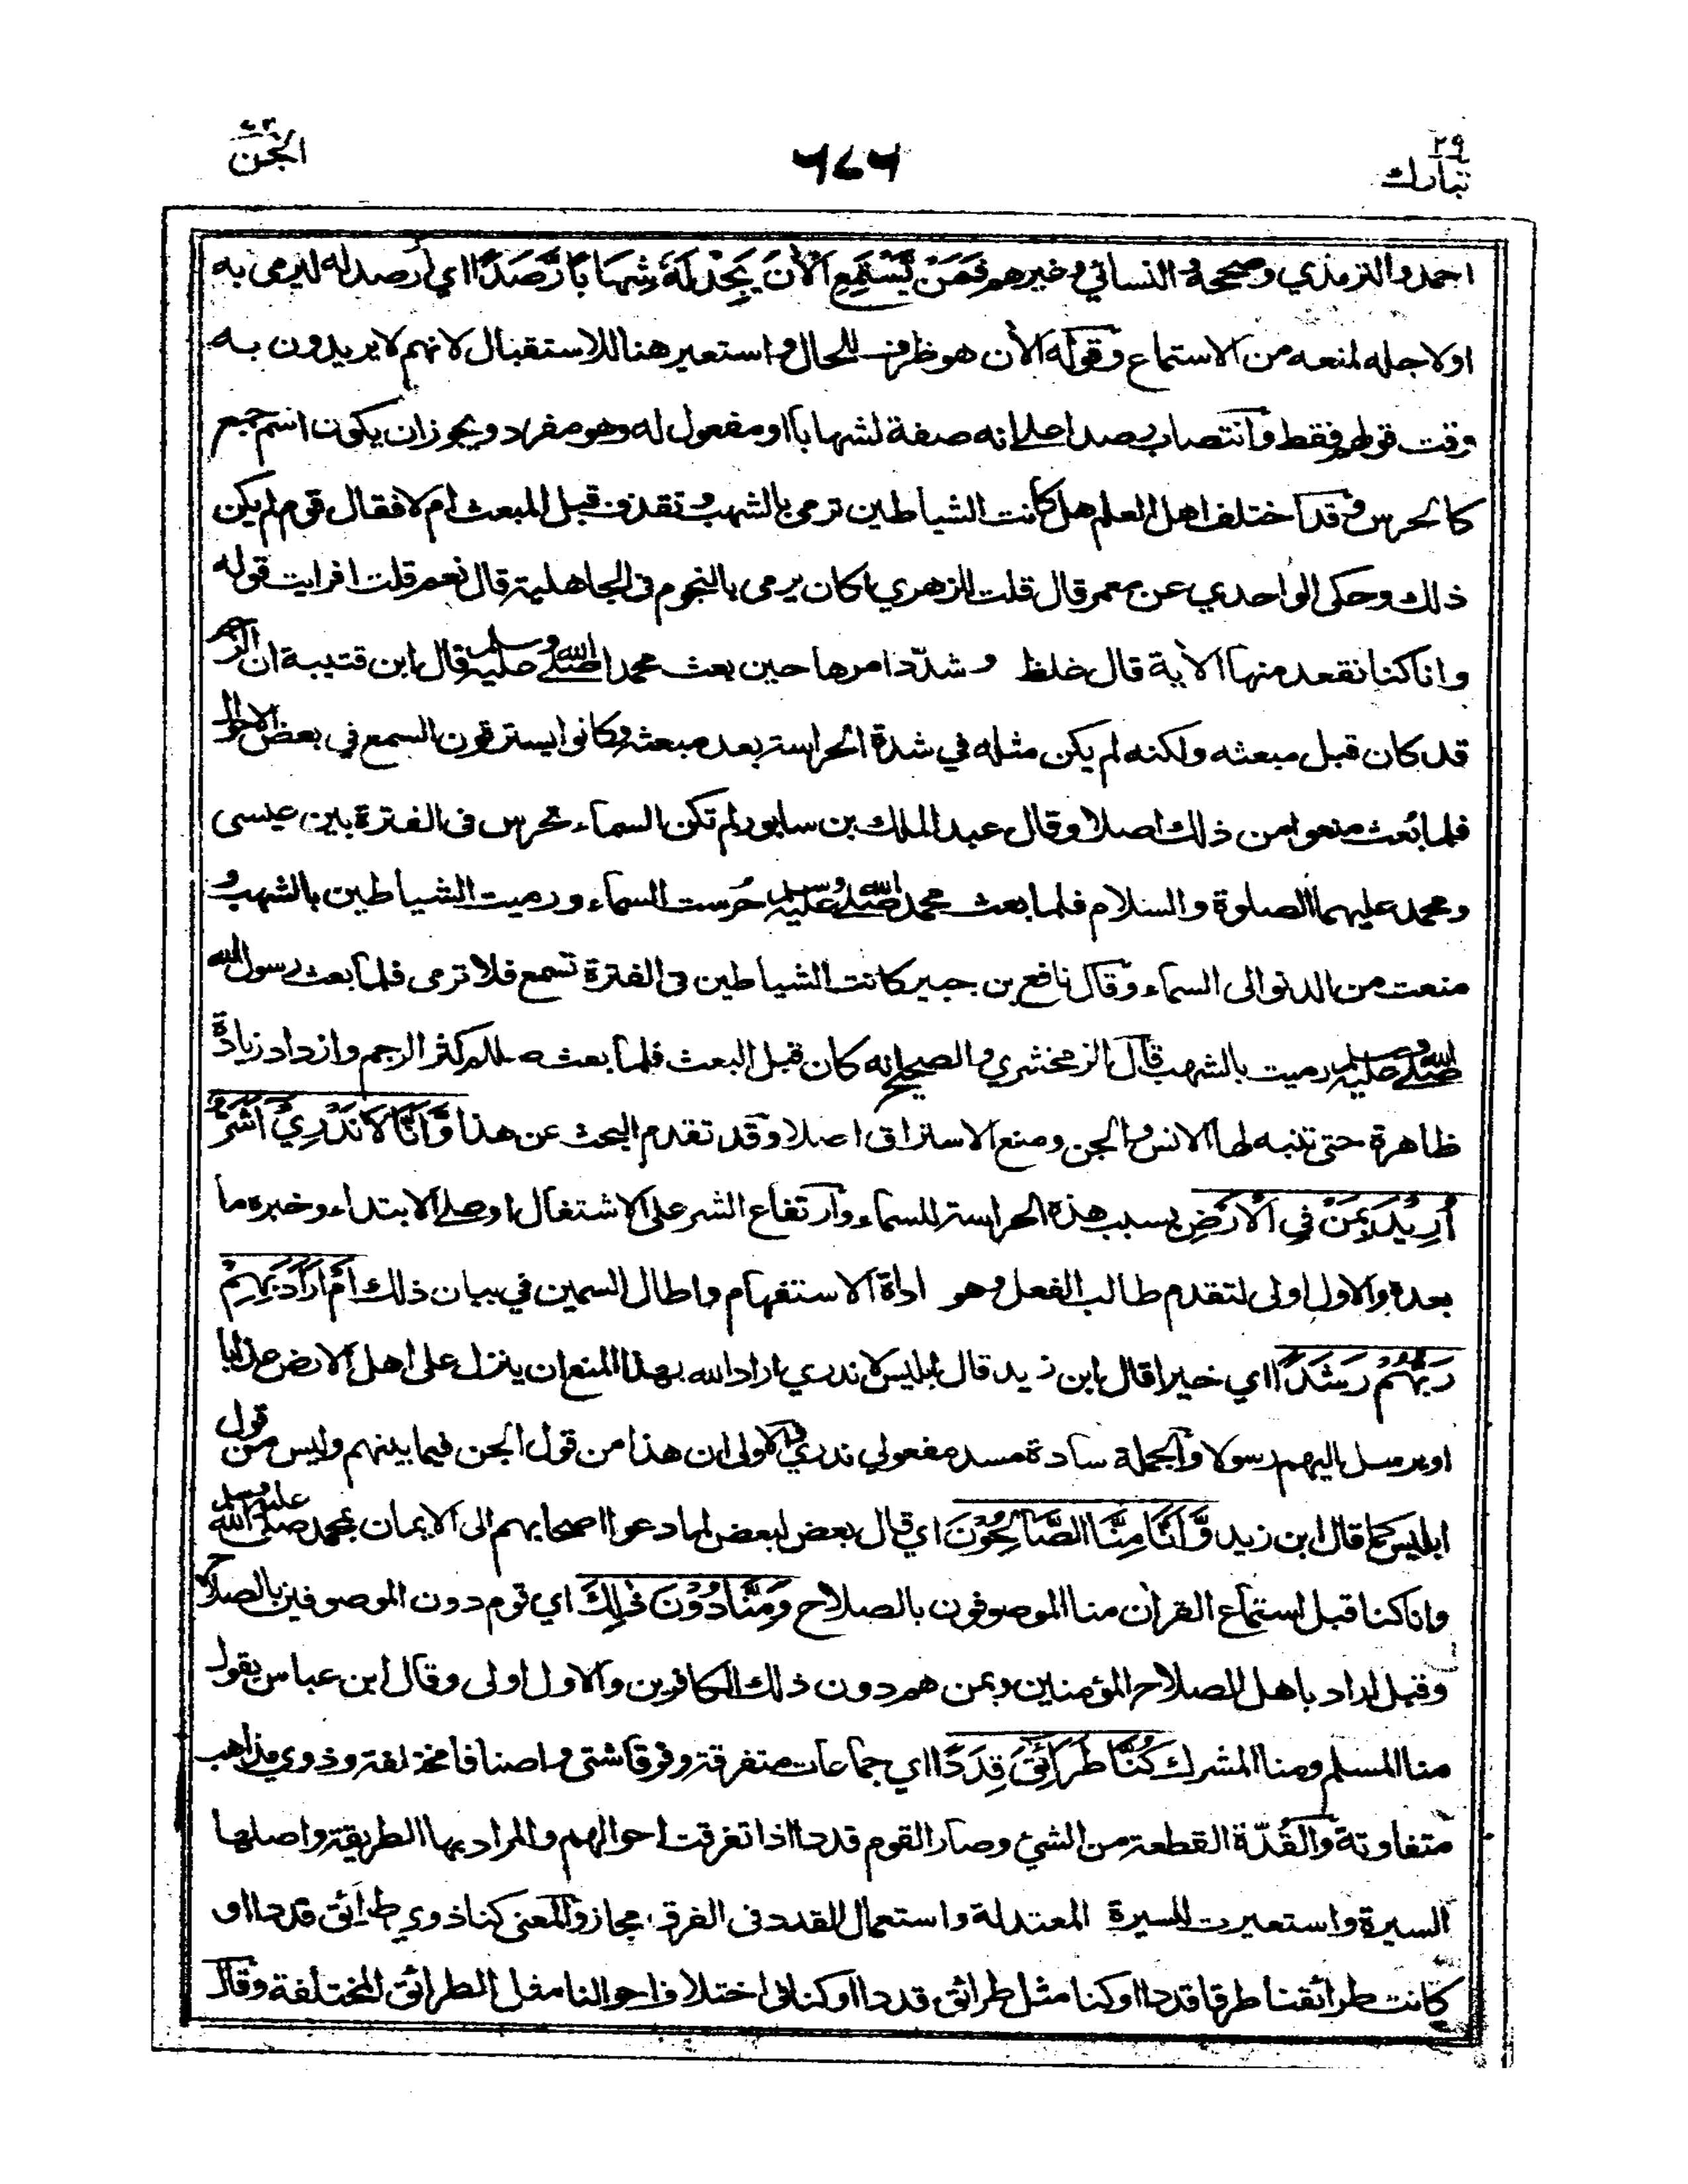 ٢٩
تبارك
الجن
احمد والترمذي وصححه والنسائي وغيرهم فَمَنْ يَّسْتَمِعِ الْاٰنَ يَجِدْ لَهٗ شِهَابًا رَّصَدًا اي ارصد له ليرمى به
او لاجله لمنعه من الاستماع وقوله الأن هو ظرف للحال واستعير هنا للاستقبال لانهم لا يريدون به
وقت قولهم فقط وانتصاب رصدا على انه صفة لشهابا او مفعول له وهو مفرد ويجوز ان يكون اسم جمع
كالحرس وقد اختلف اهل العلم هل كانت الشياطين ترمى بالشهب وتقذف قبل المبعث ام لا فقال قوم لم يكن
ذلك وحكى الواحدي عن معمر قال قلت للزهري اكان يرمى بالنجوم في الجاهلية قال نعم قلت افرايت قوله
وانا كنا نقعد منها الأية قال غلظ وشدّد امرها حين بعث محمد صلى الله عليه وسلم قال ابن قتيبة ان الرجم
قد كان قبل مبعثه ولكنه لم يكن مثله في شدة الحراسة بعد مبعثه وكانوا يسترقون السمع في بعض الاحوال
فلما بُعث منعوا من ذلك اصلا وقال عبد الملك بن سابور لم تكن السماء تحرس في الفترة بين عيسى
ومحمد عليهما الصلوة والسلام فلما بعث محمد صلى الله عليه وسلم حُرست السماء ورميت الشياطين بالشهب و
منعت من الدنو الى السماء وقال نافع بن جبير كانت الشياطين في الفترة تسمع فلا ترمى فلما بعث رسول الله
صلى الله عليه وسلم رميت بالشهب قال الزمخشري والصحيح انه كان قبل البعث فلما بعث صللم كثر الرجم وازداد زيادة
ظاهرة حتى تنبه لها الانس والجن ومنع الاستراق اصلا وقد تقدم البحث عن هذا وَّاَنَّا لَا نَدْرِيْ اَشَرٌّ
اُرِيْدَ بِمَنْ فِي الْاَرْضِ بسبب هذه الحراسة للسماء وارتفاع الشر على الاشتغال او على الابتداء وخبره ما
بعده والاول اولى لتقدم طالب الفعل وهو اداة الاستفهام واطال السمين في بيان ذلك اَمْ اَرَادَ بِهِمْ
رَبُّهُمْ رَشَدًا اي خيرا قال ابن زيد قال ابليس لا ندري اراد الله بهذا المنع ان ينزل على اهل الارض عذابا
او يرسل اليهم رسولا والجملة سادة مسد مفعولي ندري والاولى ان هذا من قول الجن فيما بينهم وليس من قول
ابليس كما قال ابن زيد وَّاَنَّا مِنَّا الصَّالِحُوْنَ اي قال بعض لبعض لما دعوا اصحابهم الى الايمان بمحمد صلى الله عليه وسلم
وانا كنا قبل استماع القرأن منا الموصوفون بالصلاح وَمِنَّا دُوْنَ ذٰلِكَ اي قوم دون الموصوفين بالصلاح
وقيل اراد باهل الصلاح المؤمنين وبمن هم دون ذلك الكافرين والاول اولى وقال ابن عباس يقول
منا المسلم ومنا المشرك كُنَّا طَرَائِقَ قِدَدًا اي جماعات متفرقة وفرقا شتى واصنافا مختلفة وذوي مذاهب
متفاوتة والقُدّة القطعة من الشئ وصار القوم قددا اذا تفرقت احوالهم والمراد بها الطريقة واصلها
السيرة واستعيرت للسيرة المعتدلة واستعمال القدد في الفرق مجاز والمعنى كنا ذوي طرائق قددا او
كانت طرائقنا طرقا قددا او كنا مثل طرائق قددا او كنا في اختلاف احوالنا مثل الطرائق المختلفة وقال